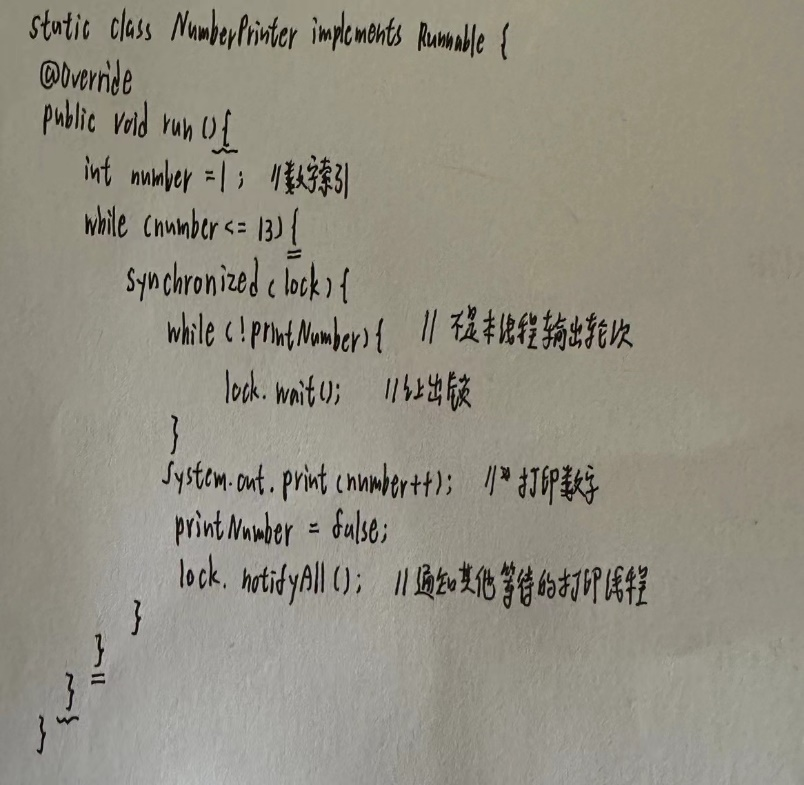 static class NumberPrinter implements Runnable {
@Override
public void run () {
int number = 1 ; //数字索引
while (number <= 13) {
synchronized (lock) {
while (!printNumber) { // 不是本线程输出轮次
lock.wait(); //让出锁
}
System.out.print (number++); // 打印数字
printNumber = false;
lock.notifyAll(); //通知其他等待的打印线程
}
}
}
}